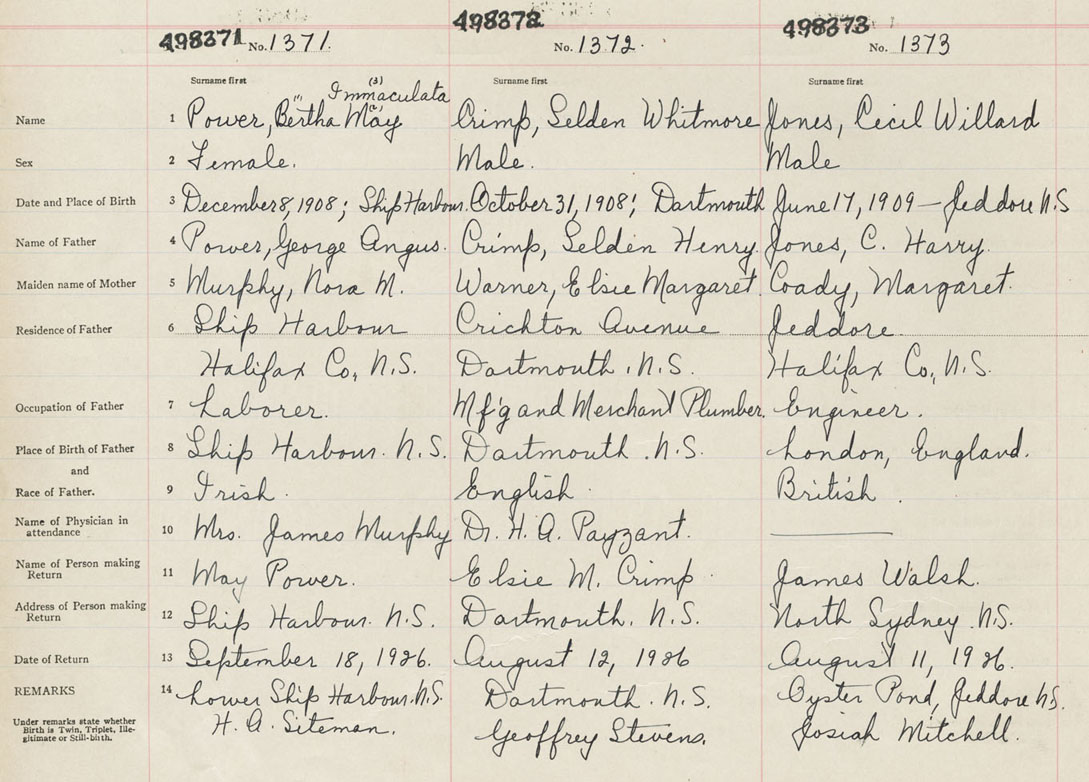 498371 No. 1371. 498372 No. 1372. 498373 No. 1373
Surname first Surname first Surname first
(3)
Immaculata
Name 1 Power, Bertha May Crimp, Selden Whitmore Jones, Cecil Willard
Sex 2 Female. Male. Male
Date and Place of Birth 3 December 8, 1908; Ship Harbour. October 31, 1908; Dartmouth June 17, 1909 — Jeddore N.S
Name of Father 4 Power, George Angus. Crimp, Selden Henry. Jones, C. Harry.
Maiden name of Mother 5 Murphy, Nora M. Warner, Elsie Margaret. Coady, Margaret.
Residence of Father 6 Ship Harbour Crichton Avenue Jeddore.
Halifax Co, N.S. Dartmouth. N.S. Halifax Co, N.S.
Occupation of Father 7 Laborer. Mf'g and Merchant Plumber. Engineer.
Place of Birth of Father 8 Ship Harbour. N.S. Dartmouth. N.S. London, England.
and
Race of Father. 9 Irish. English. British.
Name of Physician in
attendance 10 Mrs. James Murphy Dr. H. A. Payzant. ———
Name of Person making
Return 11 May Power. Elsie M. Crimp. James Walsh.
Address of Person making
Return 12 Ship Harbour. N.S. Dartmouth. N.S. North Sydney. N.S.
Date of Return 13 September 18, 1926. August 12, 1926 August 11, 1926.
REMARKS 14 Lower Ship Harbour. N.S. Dartmouth. N.S. Oyster Pond, Jeddore N.S.
Under remarks state whether
Birth is Twin, Triplet, Ille-
gitimate or Still-birth. H. A. Siteman. Geoffrey Stevens. Josiah Mitchell.